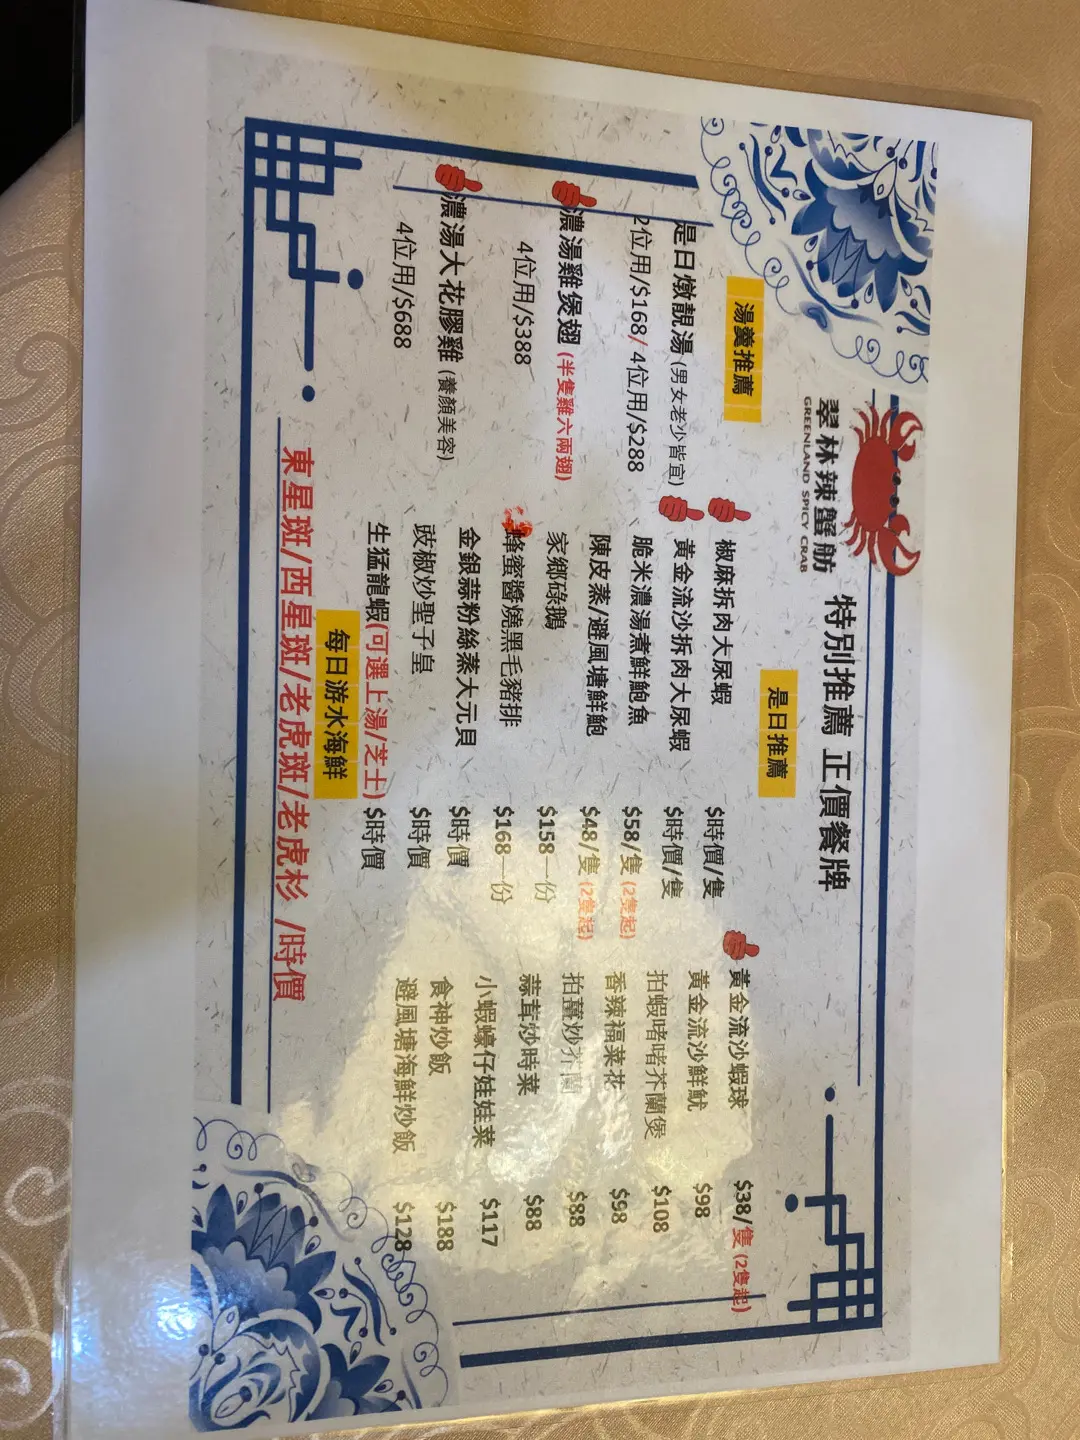 翠林辣蟹舫
GREENLAND SPICY CRAB
特別推薦 正價餐牌
湯羹推薦
是日燉靚湯(男女老少皆宜)
2位用/$168/ 4位用/$288
濃湯雞煲翅 (半隻雞六兩翅)
4位用/$388
濃湯大花膠雞 (養顏美容)
4位用/$688
是日推薦
椒麻拆肉大尿蝦 $時價/隻
黃金流沙拆肉大尿蝦 $時價/隻
脆米濃湯煮鮮鮑魚 $58/隻 (2隻起)
陳皮蒸/避風塘鮮鮑 $48/隻 (2隻起)
家鄉碌鵝 $158一份
蜂蜜醬燒黑毛豬排 $168一份
金銀蒜粉絲蒸大元貝 $時價
豉椒炒聖子皇 $時價
生猛龍蝦(可選上湯/芝士) $時價
黃金流沙蝦球 $38/隻 (2隻起)
黃金流沙鮮魷 $98
拍蝦啫啫芥蘭煲 $108
香辣福菜花 $98
拍薑炒芥蘭 $88
蒜茸炒時菜 $88
小蝦蠔仔娃娃菜 $117
食神炒飯 $188
避風塘海鮮炒飯 $128
每日游水海鮮
東星斑/西星斑/老虎斑/老虎杉 /時價